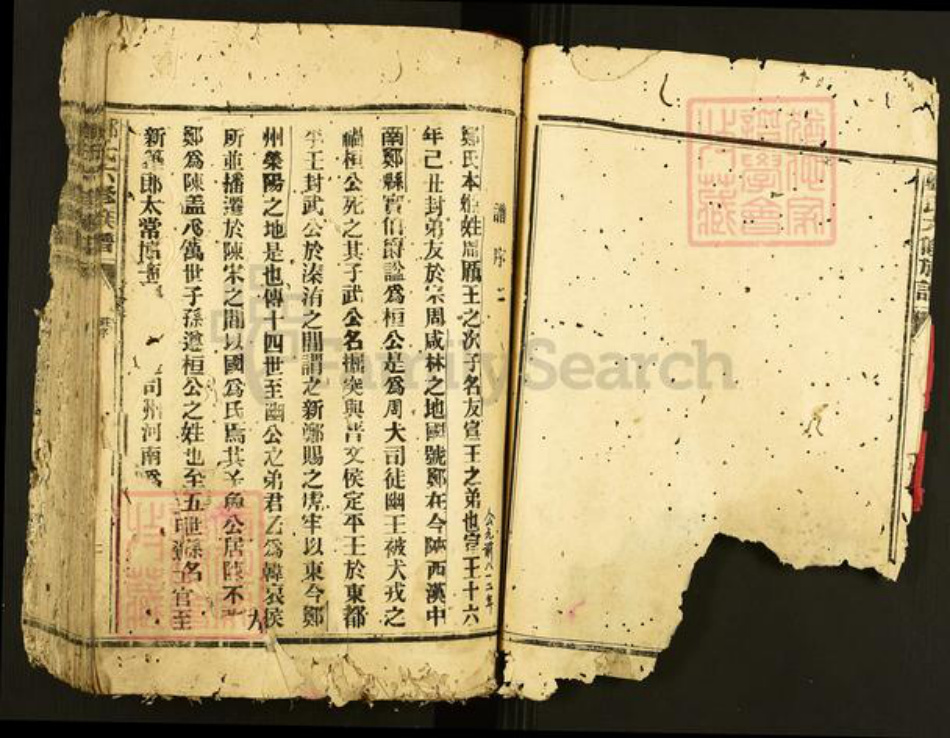 譜序二
鄭氏本姬姓周厲王之次子名友宣王之弟也宣王十六
公元前八一二年
年己丑封弟友於宗周咸林之地國號鄭在今陝西漢中
南鄭縣實伯爵諡為桓公是為周大司徒幽王被犬戎之
禍桓公死之其子武公名掘突與晉文侯定平王於東都
平王封武公於溱洧之間謂之新鄭賜之虎牢以東今鄭
州滎陽之地是也傳十四世至幽公之弟君乙為韓哀侯
所並播遷於陳宋之間以國為氏焉其子魯公居陳不
鄭為陳蓋萬世子孫遵桓公之姓也至五世孫名官至
新郎太常博 司州河南為
氏六修族譜
FamilySearch